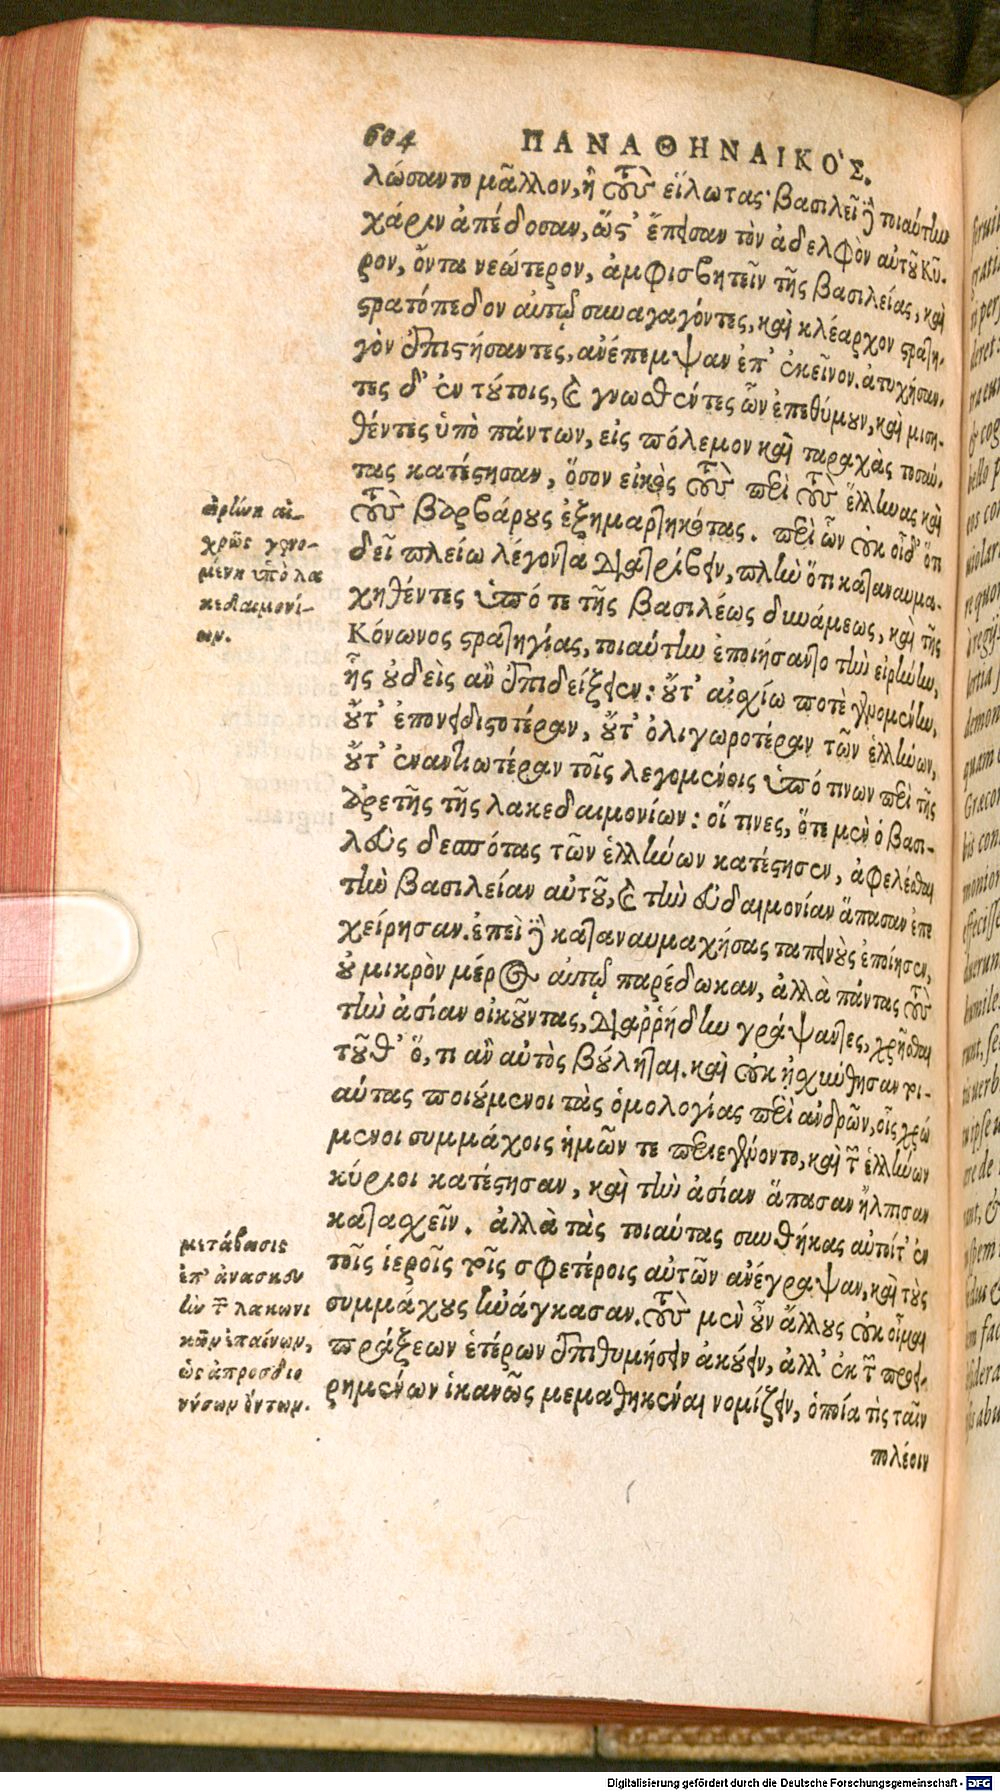 604 ΠΑΝΑΘΗΝΑΙΚΟ'Σ.
λώσαντο μᾶλλον, ἢ τοὺς εἵλωτας· βασιλεῖ δὲ τοιαύτην
χάριν ἀπέδοσαν, ὥστ' ἔπεισαν τὸν ἀδελφὸν αὐτοῦ Κῦ-
ρον, ὄντα νεώτερον, ἀμφισβητεῖν τῆς βασιλείας, καὶ
στρατόπεδον αὐτῷ συναγαγόντες, καὶ κλέαρχον στρατη-
γὸν ἐπιστήσαντες, ἀνέπεμψαν ἐπ' ἐκεῖνον. ἀτυχήσαν-
τες δ' ἐν τούτοις, καὶ γνωσθέντες ὧν ἐπεθύμουν, καὶ μιση-
θέντες ὑπὸ πάντων, εἰς πόλεμον καὶ ταραχὰς τοσαύ-
τας κατέστησαν, ὅσον εἰκὸς τοὺς περὶ τοὺς ἕλληνας καὶ
τοὺς βαρβάρους ἐξημαρτηκότας. περὶ ὧν οὐκ οἶδ' ὅτι
δεῖ πλείω λέγοντα διατρίβειν, πλὴν ὅτι καταναυμα-
χηθέντες ὑπό τε τῆς βασιλέως δυνάμεως, καὶ τῆς
Κόνωνος στρατηγίας, τοιαύτην ἐποιήσαντο τὴν εἰρήνην,
ἧς οὐδεὶς ἂν ἐπιδείξειεν: οὔτ' αἰσχίω ποτὲ γενομένην,
οὔτ' ἐπονειδιστοτέραν, οὔτ' ὀλιγωροτέραν τῶν ἑλλήνων,
οὔτ' ἐναντιωτέραν τοῖς λεγομένοις ὑπό τινων περὶ τῆς
ἀρετῆς τῆς λακεδαιμονίων: οἵ τινες, ὅτε μὲν ὁ βασι-
λεὺς δεσπότας τῶν ἑλλήνων κατέστησεν, ἀφελέσθαι
τὴν βασιλείαν αὐτοῦ, καὶ τὴν εὐδαιμονίαν ἅπασαν ἐπε
χείρησαν. ἐπεὶ δὲ καταναυμαχήσας ταπεινοὺς ἐποίησεν,
οὐ μικρὸν μέρος αὐτῷ παρέδωκαν, ἀλλὰ πάντας τοὺς
τὴν ἀσίαν οἰκοῦντας, διαρρήδην γράψαντες, χρῆσθαι
τοῦθ' ὅ, τι ἂν αὐτὸς βούληται. καὶ οὐκ ᾐσχύνθησαν τοι-
αύτας ποιούμενοι τὰς ὁμολογίας περὶ ἀνδρῶν, οἷς χρώ
μενοι συμμάχοις ἡμῶν τε περιεγένοντο, καὶ τῶν ἑλλήνων
κύριοι κατέστησαν, καὶ τὴν ἀσίαν ἅπασαν ἤλπισαν
κατασχεῖν. ἀλλὰ τὰς τοιαύτας συνθήκας αὐτοί τ' ἐν
τοῖς ἱεροῖς τοῖς σφετέροις αὐτῶν ἀνέγραψαν, καὶ τοὺς
συμμάχους ἠνάγκασαν. τοὺς μὲν οὖν ἄλλους οὐκ οἶμαι
πράξεων ἑτέρων ἐπιθυμήσειν ἀκούειν, ἀλλ' ἐκ τῶν προει-
ρημένων ἱκανῶς μεμαθηκέναι νομίζειν, ὁποία τὶς ταῖν
πολέοιν
εἰρήνη αἰ-
χρῶς γενο-
μένη ὑπὸ λα
κεδαιμονί-
ων.
μετάβασις
ἐπ' ἀνασκευ
ὴν τῶν λακωνι
κῶν ἐπαίνων,
ὡς ἀπροσδιο
νύσων ὄντων.
Digitalisierung gefördert durch die Deutsche Forschungsgemeinschaft - DFG